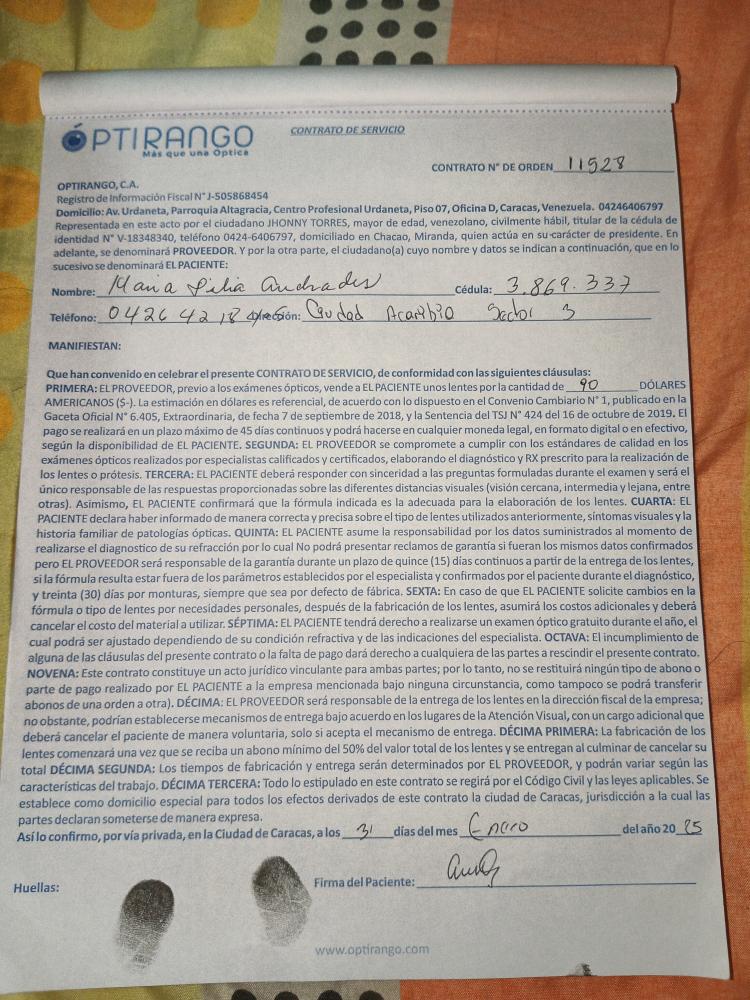 ÓPTIRANGO
Más que una Optica
CONTRATO DE SERVICIO
CONTRATO N° DE ORDEN 11528
OPTIRANGO, C.A.
Registro de Información Fiscal N° J-505868454
Domicilio: Av. Urdaneta, Parroquia Altagracia, Centro Profesional Urdaneta, Piso 07, Oficina D, Caracas, Venezuela. 04246406797
Representada en este acto por el ciudadano JHONNY TORRES, mayor de edad, venezolano, civilmente hábil, titular de la cédula de
identidad N° V-18348340, teléfono 0424-6406797, domiciliado en Chacao, Miranda, quien actúa en su carácter de presidente. En
adelante, se denominará PROVEEDOR. Y por la otra parte, el ciudadano(a) cuyo nombre y datos se indican a continuación, que en lo
sucesivo se denominará EL PACIENTE:
Nombre: Maria Silia Andrades Cédula: 3.869.337
Teléfono: 0426 4218 Dirección: Ciudad Sector 3
MANIFIESTAN:
Que han convenido en celebrar el presente CONTRATO DE SERVICIO, de conformidad con las siguientes cláusulas:
PRIMERA: EL PROVEEDOR, previo a los exámenes ópticos, vende a EL PACIENTE unos lentes por la cantidad de 90 DÓLARES
AMERICANOS ($-). La estimación en dólares es referencial, de acuerdo con lo dispuesto en el Convenio Cambiario N° 1, publicado en la
Gaceta Oficial N° 6.405, Extraordinaria, de fecha 7 de septiembre de 2018, y la Sentencia del TSJ N° 424 del 16 de octubre de 2019. El
pago se realizará en un plazo máximo de 45 días continuos y podrá hacerse en cualquier moneda legal, en formato digital o en efectivo,
según la disponibilidad de EL PACIENTE. SEGUNDA: EL PROVEEDOR se compromete a cumplir con los estándares de calidad en los
exámenes ópticos realizados por especialistas calificados y certificados, elaborando el diagnóstico y RX prescrito para la realización de
los lentes o prótesis. TERCERA: EL PACIENTE deberá responder con sinceridad a las preguntas formuladas durante el examen y será el
único responsable de las respuestas proporcionadas sobre las diferentes distancias visuales (visión cercana, intermedia y lejana, entre
otras). Asimismo, EL PACIENTE confirmará que la fórmula indicada es la adecuada para la elaboración de los lentes. CUARTA: EL
PACIENTE declara haber informado de manera correcta y precisa sobre el tipo de lentes utilizados anteriormente, síntomas visuales y la
historia familiar de patologías ópticas. QUINTA: EL PACIENTE asume la responsabilidad por los datos suministrados al momento de
realizarse el diagnostico de su refracción por lo cual No podrá presentar reclamos de garantía si fueran los mismos datos confirmados
pero EL PROVEEDOR será responsable de la garantía durante un plazo de quince (15) días continuos a partir de la entrega de los lentes,
si la fórmula resulta estar fuera de los parámetros establecidos por el especialista y confirmados por el paciente durante el diagnóstico,
y treinta (30) días por monturas, siempre que sea por defecto de fábrica. SEXTA: En caso de que EL PACIENTE solicite cambios en la
fórmula o tipo de lentes por necesidades personales, después de la fabricación de los lentes, asumirá los costos adicionales y deberá
cancelar el costo del material a utilizar. SÉPTIMA: EL PACIENTE tendrá derecho a realizarse un examen óptico gratuito durante el año, el
cual podrá ser ajustado dependiendo de su condición refractiva y de las indicaciones del especialista. OCTAVA: El incumplimiento de
alguna de las cláusulas del presente contrato o la falta de pago dará derecho a cualquiera de las partes a rescindir el presente contrato.
NOVENA: Este contrato constituye un acto jurídico vinculante para ambas partes; por lo tanto, no se restituirá ningún tipo de abono o
parte de pago realizado por EL PACIENTE a la empresa mencionada bajo ninguna circunstancia, como tampoco se podrá transferir
abonos de una orden a otra). DÉCIMA: EL PROVEEDOR será responsable de la entrega de los lentes en la dirección fiscal de la empresa;
no obstante, podrían establecerse mecanismos de entrega bajo acuerdo en los lugares de la Atención Visual, con un cargo adicional que
deberá cancelar el paciente de manera voluntaria, solo si acepta el mecanismo de entrega. DÉCIMA PRIMERA: La fabricación de los
lentes comenzará una vez que se reciba un abono mínimo del 50% del valor total de los lentes y se entregan al culminar de cancelar su
total DÉCIMA SEGUNDA: Los tiempos de fabricación y entrega serán determinados por EL PROVEEDOR, y podrán variar según las
características del trabajo. DÉCIMA TERCERA: Todo lo estipulado en este contrato se regirá por el Código Civil y las leyes aplicables. Se
establece como domicilio especial para todos los efectos derivados de este contrato la ciudad de Caracas, jurisdicción a la cual las
partes declaran someterse de manera expresa.
Así lo confirmo, por vía privada, en la Ciudad de Caracas, a los 31 días del mes Enero del año 20 25
Huellas:
Firma del Paciente:
www.optirango.com